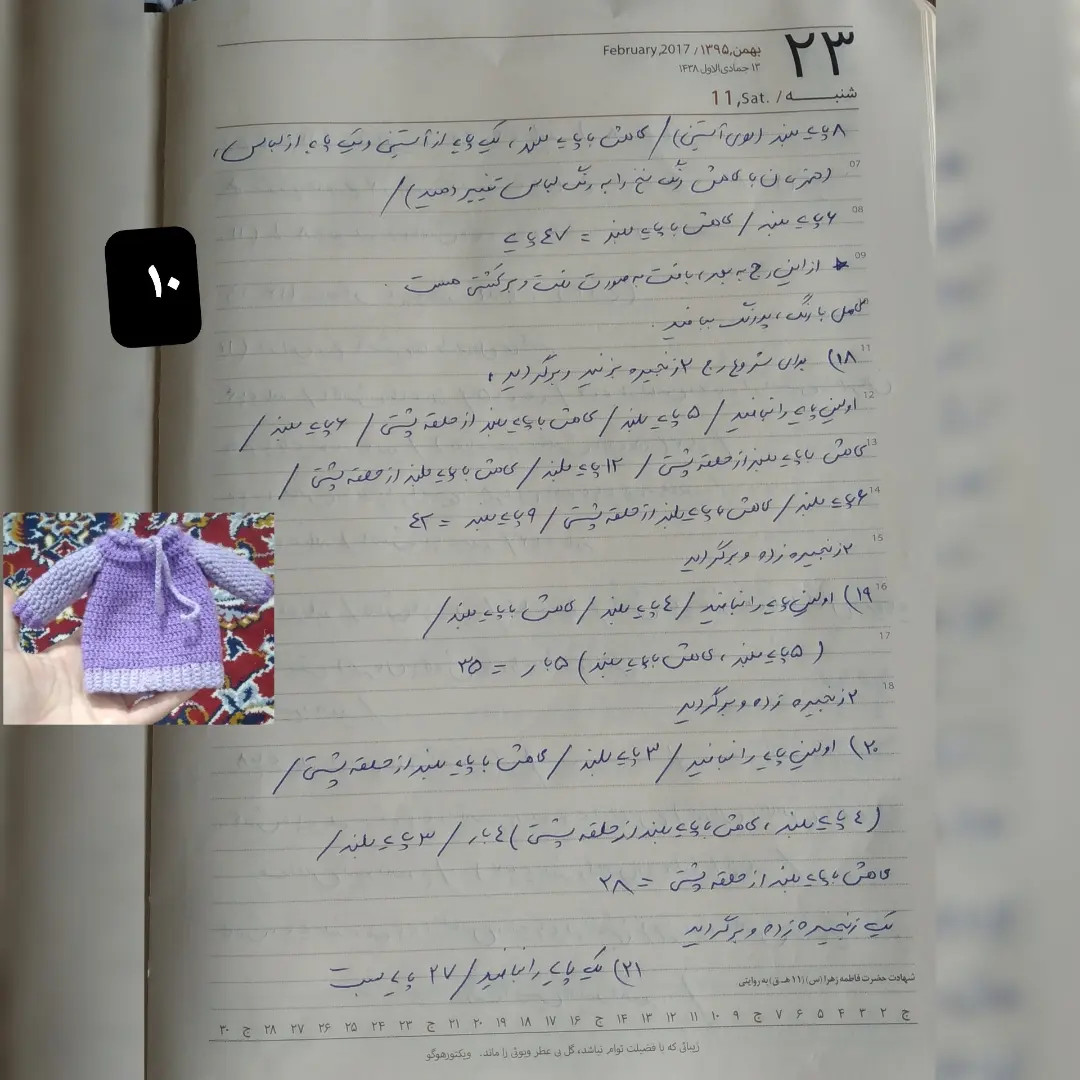 ۲۳
بهمن,۱۳۹۵ / February,2017
۱۳ جمادی‌الاول ۱۴۳۸
شنبـــــه / .11,Sat
۸ پایه بلند (روی آستین) / کاهش با پایه بلند، یک پایه از آستین و یک پایه از لباس،
07
(همزمان با کاهش رنگ نخ را به رنگ لباس تغییر دهید) /
08
۶ پایه بلند / کاهش با پایه بلند = ۴۷ پایه
09
از این رج به بعد، بافت به صورت رفت و برگشتی هست.
کامل با رنگ، پررنگ ببافید.
11
۱۸) برای شروع رج ۲ زنجیره بزنید و برگردید.
12
اولین پایه را نبافید / ۵ پایه بلند / کاهش با پایه بلند از حلقه پشتی / ۶ پایه بلند /
13
کاهش با پایه بلند از حلقه پشتی / ۱۲ پایه بلند / کاهش با پایه بلند از حلقه پشتی /
14
۶ پایه بلند / کاهش با پایه بلند از حلقه پشتی / ۹ پایه بلند = ۴۲
15
۲ زنجیره زده و برگردید
16
۱۹) اولین پایه را نبافید / ۴ پایه بلند / کاهش با پایه بلند /
17
(۵ پایه بلند، کاهش با پایه بلند) ۵ بار = ۳۵
18
۲ زنجیره زده و برگردید
۲۰) اولین پایه را نبافید / ۳ پایه بلند / کاهش با پایه بلند از حلقه پشتی /
(۴ پایه بلند، کاهش با پایه بلند از حلقه پشتی) ۴ بار / ۳ پایه بلند /
کاهش با پایه بلند از حلقه پشتی = ۲۸
یک زنجیره زده و برگردید
۲۱) یک پایه را نبافید / ۲۷ پایه
شهادت حضرت فاطمه زهرا (س) (۱۱ هـ ق) به روایتی
ج ۲ ۳ ۴ ۵ ۶ ۷ ج ۹ ۱۰ ۱۱ ۱۲ ۱۳ ۱۴ ج ۱۶ ۱۷ ۱۸ ۱۹ ۲۰ ۲۱ ج ۲۳ ۲۴ ۲۵ ۲۶ ۲۷ ۲۸ ج ۳۰
زیبائی که با فضیلت توام نباشد، گل بی عطر وبوئی را ماند. ویکتورهوگو
۱۰